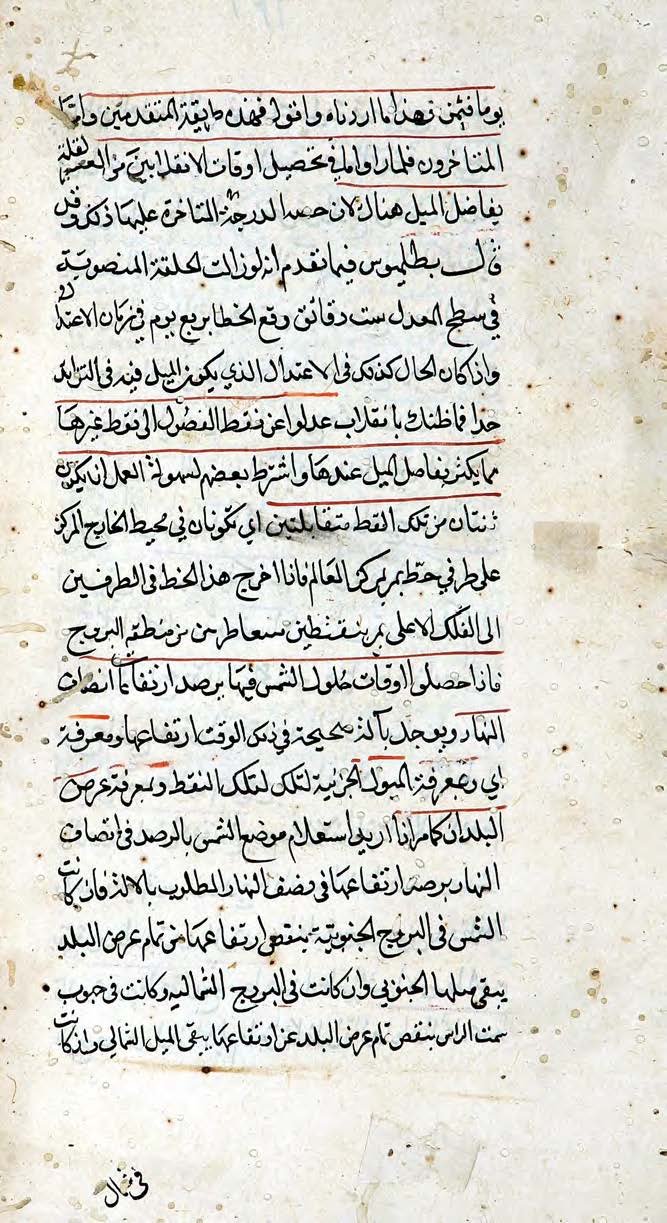 يوما فثمن فهذا ما اردناه واقول فهذه طريقة المتقدمين واما
المتاخرون فلما راوا ما في تحصيل اوقات الانقلابين من العسر لقلة
تفاضل الميل هناك لان حصه الدرجة المتاخرة عليها ذلك وقد
قال بطلميوس فيما تقدم انه لو زالت الحلقة المنصوبة
في سطح المعدل ست دقائق وقع الخطا بربع يوم في زمان الاعتدال
واذا كان الحال كذلك في الاعتدال الذي يكون الميل فيه في التزايد
جدا فما ظنك بانقلاب عدلوا عن نقط الفصول الى نقط غيرها
مما يكثر تفاضل الميل عندها واشترط بعضهم لسهولة العمل ان يكون
ثنتان من تلك النقط متقابلتين اي تكونان في محيط الخارج المركز
على طرفي خط يمر بمركز العالم فاذا اخرج هذا الخط في الطرفين
الى الفلك الاعلى يمر بنقطتين متقاطرتين من منطقة البروج
فاذا حصلوا اوقات حلول الشمس فيها برصد ارتفاعات انصاف
النهار ويوجد بآلة صحيحة في ذلك الوقت ارتفاعها ومعرفة
اي وبمعرفة الميول الجزئية لتلك لتلك النقط ولمعرفة عرض
البلد ان كما مر اذا اريد استعلام موضع الشمس بالرصد في انتصاف
النهار يرصد ارتفاعها في نصف النهار المطلوب بالالة فان كانت
الشمس في البروج الجنوبية ينقص ارتفاعها من تمام عرض البلد
يبقى ميلها الجنوبي وان كانت في البروج الشماليه وكانت في جنوب
سمت الراس ينقص تمام عرض البلد عن ارتفاعها يبقى الميل الشمالي واذ كانت
في شمال